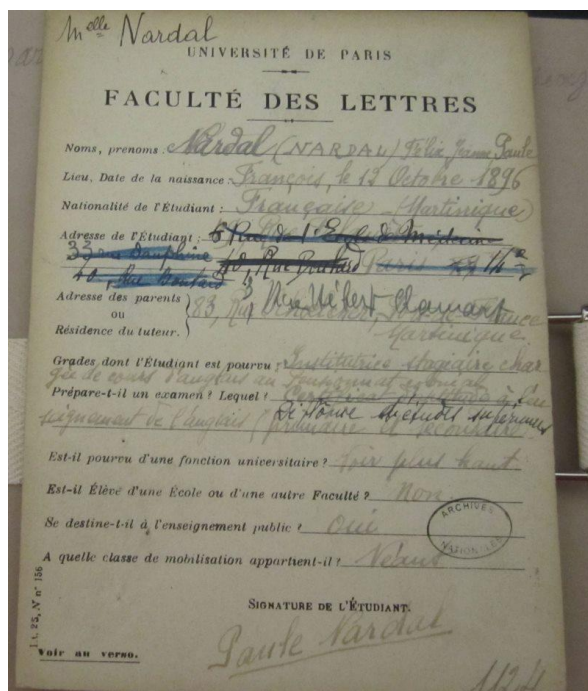 Melle Nardal
UNIVERSITÉ DE PARIS
FACULTÉ DES LETTRES
Noms, prenoms : Nardal (NARDAL) Félix Jeanne Paule
Lieu, Date de la naissance : François, le 12 Octobre 1896
Nationalité de l'Étudiant : Française (Martinique)
Adresse de l'Étudiant : 5 Rue de l'École de Médecine
33 rue Dauphine 40, Rue Boulard Paris 14e
40, Rue Boulard
Adresse des parents 83, Rue Schoelcher, France
ou Martinique
Résidence du tuteur.
Grades dont l'Étudiant est pourvu : Institutrice stagiaire char
gée de cours d'anglais au pensionnat colonial
Prépare-t-il un examen ? Lequel ? Certificat
Diplôme d'études supérieures
seignement de l'anglais (primaire et secondaire)
Est-il pourvu d'une fonction universitaire ? Voir plus haut
Est-il Élève d'une École ou d'une autre Faculté ? Non
Se destine-t-il à l'enseignement public ? Oui
A quelle classe de mobilisation appartient-il ? Néant
ARCHIVES
NATIONALES
SIGNATURE DE L'ÉTUDIANT.
Paule Nardal
I.t. 2S, N n° 156
Voir au verso.